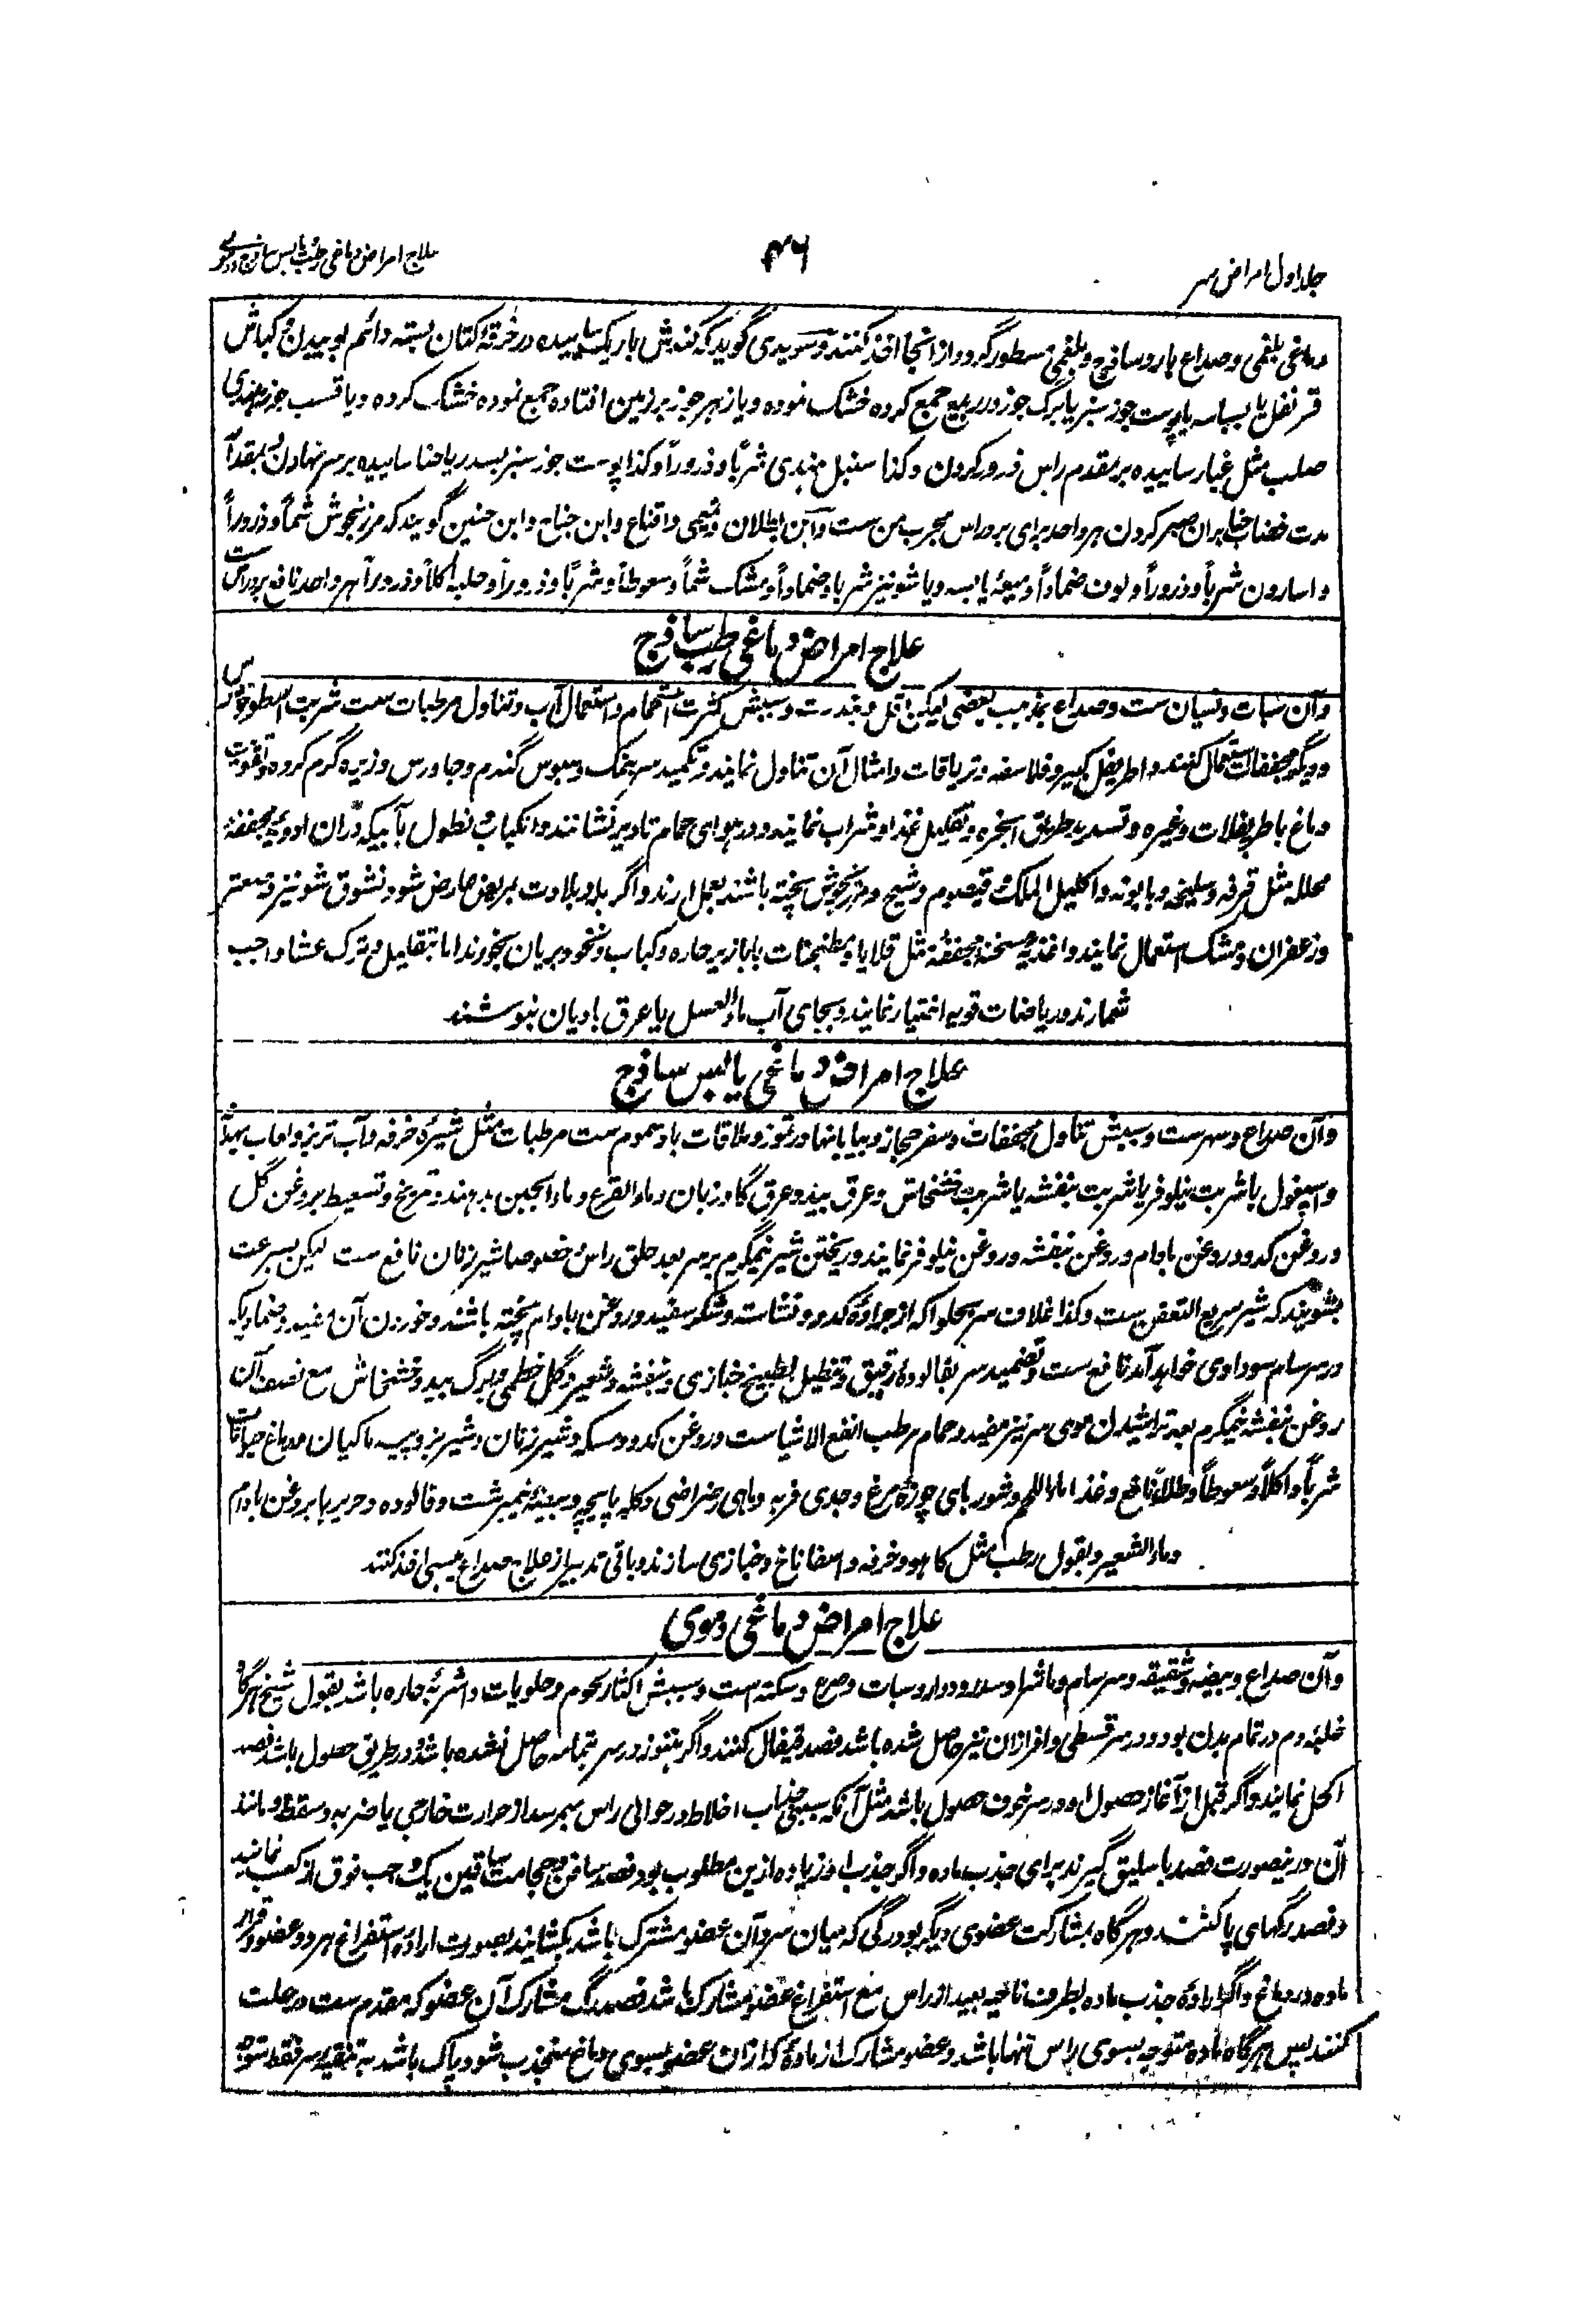 جلد اول امراض سر
۴۶
علاج امراض دماغی رطب یابس ساذج و دموی
دماغی بلغمی و صداع بارد ساذج و بلغمی مسطور گردد از انجا اخذ کنند و سویدی گوید که کندش باریک ساییده در خرقهٔ کتان بسته دائم بوییدن و کبابش
قرنفل یا بسباسه یا پوست جوز سبز یا برگ جوز در ربیع جمع کرده خشک نموده و یا زهر جوز بر زمین افتاده جمع نموده خشک کرده و یا قسب جوز هندی
صلب مثل غبار ساییده بر مقدم راس ذرور کردن و کذا سنبل هندی شرباً و ذروراً و کذا پوست جوز سبز بسدر یا حنا ساییده بر سر نهادن بمقدار
مدت خضاب بران صبر کردن هر واحد برای برد راس مجرب من ست و ابن بطلان و تمیمی و اقناع و ابن جناح و ابن حنین گویند که مرزنجوش شماً و ذروراً
و اسارون شرباً و ذروراً و لوف ضماداً و میعهٔ یابسه و یا شونیز شرباً و ضماداً و مشک شماً و سعوطاً و شرباً و ذروراً و حلبه اکلاً و ذروراً هر واحد نافع برد راس ست
علاج امراض دماغی رطب ساذج
و آن سبات و نسیان ست و صداع بمذهب بعضی لیکن اقل و بندرت و سببش کثرت استحمام و استعمال آب و تناول مرطبات ست شربت اسطوخودوس
و دیگر مجففات استعمال کنند و اطریفل کبیر و فلاسفه و تریاقات و امثال آن تناول نمایند و تکمید سر بنمک و سبوس گندم و جاورس و زیره گرم کرده و تقویت
دماغ باطریفلات و غیره و تسدید طریق ابخره و تقلیل غذا و شراب نمایند و در هوای حمام تا دیر نشانند و انکباب و نطول بآبیکه دران ادویهٔ مجففهٔ
محلله مثل قرفه و سلیخه و بابونه و اکلیل الملک و قیصوم و شیح و مرزنجوش پخته باشند بعمل آرند و اگر بله و بلادت بمریض عارض شود نشوق شونیز و سعتر
و زعفران و مشک استعمال نمایند و اغذیهٔ مسخنهٔ مجففه مثل قلایا و مطنجنات با ابازیر حاره و کباب و نخود بریان بخورند اما بتقلیل و ترک عشا واجب
شمارند و ریاضات قویه اختیار نمایند و بجای آب ماءالعسل یا عرق بادیان بنوشند
علاج امراض دماغی یابس ساذج
و آن صداع و سهر ست و سببش تناول مجففات و سفر حجاز و بیابانها در تموز و ملاقات باد سموم ست مرطبات مثل شیرهٔ خرفه و آب تربز و لعاب بهدانه
و اسپغول با شربت نیلوفر یا شربت بنفشه یا شربت خشخاش و عرق بید و عرق گاوزبان و ماءالقرع و ماءالجبن بدهند و تمریخ و تسعیط بروغن گل
و روغن کدو و روغن بادام و روغن بنفشه و روغن نیلوفر نمایند و ریختن شیر نیمگرم بر سر بعد حلق راس خصوصا شیر زنان نافع ست لیکن بسرعت
بشویند که شیر سریع التعفن ست و کذا غلاف سر بحلوا که از جرادهٔ کدو و نشاسته و شکر سفید و روغن بادام پخته باشند و خوردن آن مفید و ضمادیکه
در سرسام سوداوی خواهد آمد نافع ست و تضمید سر بفالودهٔ رقیق و تنطیل بطبیخ خبازی و بنفشه و شعیر و گل خطمی و برگ بید و خشخاش مع نصف آن
روغن بنفشه نیمگرم بعد تراشیدن موی سر نیز مفید و حمام مرطب انفع الاشیاست و روغن کدو و مسکه و شیر زنان و شیر بز و پیه ماکیان و دماغ حیوانات
شرباً و اکلاً و سعوطاً و طلاءً نافع و غذا ماءاللحم و شوربای چوزهٔ مرغ و جدی فربه و ماهی رضراضی و کله پاچه و بیضهٔ نیمبرشت و فالوده و حریره با بروغن بادام
و ماءالشعیر و بقول رطب مثل کاهو و خرفه و اسفاناخ و خبازی سازند و باقی تدبیر از علاج صداع یبسی اخذ کنند
علاج امراض دماغی دموی
و آن صداع و بیضه و شقیقه و سرسام و ماشرا و سدر و دوار و سبات و صرع و سکته است و سببش اکثار لحوم و حلویات و اشربهٔ حاره باشد بقول شیخ هرگاه
غلبهٔ دم در تمام بدن بود و در سر قسطی وافر ازان نیز حاصل شده باشد فصد قیفال کنند و اگر هنوز در سر بتمامه حاصل نشده باشد و در طریق حصول باشد فصد
اکحل نمایند و اگر قبل از آغاز حصول او در سر خوف حصول باشد مثل آنکه سببی جذاب اخلاط در حوالی راس بهم رسد از حرارت خارجی یا ضربه و سقطه و مانند
آن درینصورت فصد باسلیق گیرند برای جذب ماده و اگر جذب او زیاده ازین مطلوب بود فصد صافن و حجامت ساقین یک وجب فوق از کعب نمایند
و فصد رگهای پا کنند و هرگاه بمشارکت عضوی دیگر بود رگی که میان سر و آن عضو مشترک باشد بکشایند بصورت ارادهٔ استفراغ هر دو عضو و قرار
ماده در دماغ و اگر ارادهٔ جذب ماده بطرف ناحیه بعید از راس مع استفراغ عضو مشارک باشد فصد رگ مشارک آن عضو که مقدم ست در علت
کنند پس هرگاه ماده متوجه بسوی راس تنها باشد و عضو مشارک از مادهٔ که ازان عضو بسوی دماغ منجذب شود پاک باشد به تنقیهٔ سر فقط متوجه